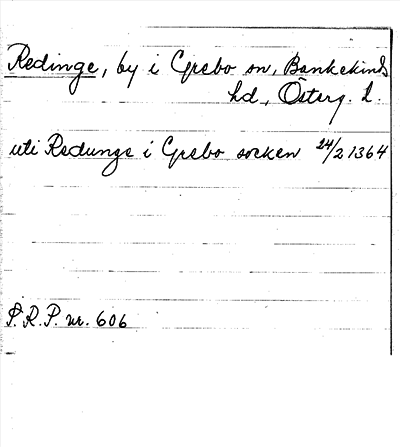 Redinge, by i Grebo sn, Bankekinds
hd, Österg. l.
uti Redunge i Grebo socken 24/2 1364
S.R.P. nr. 606